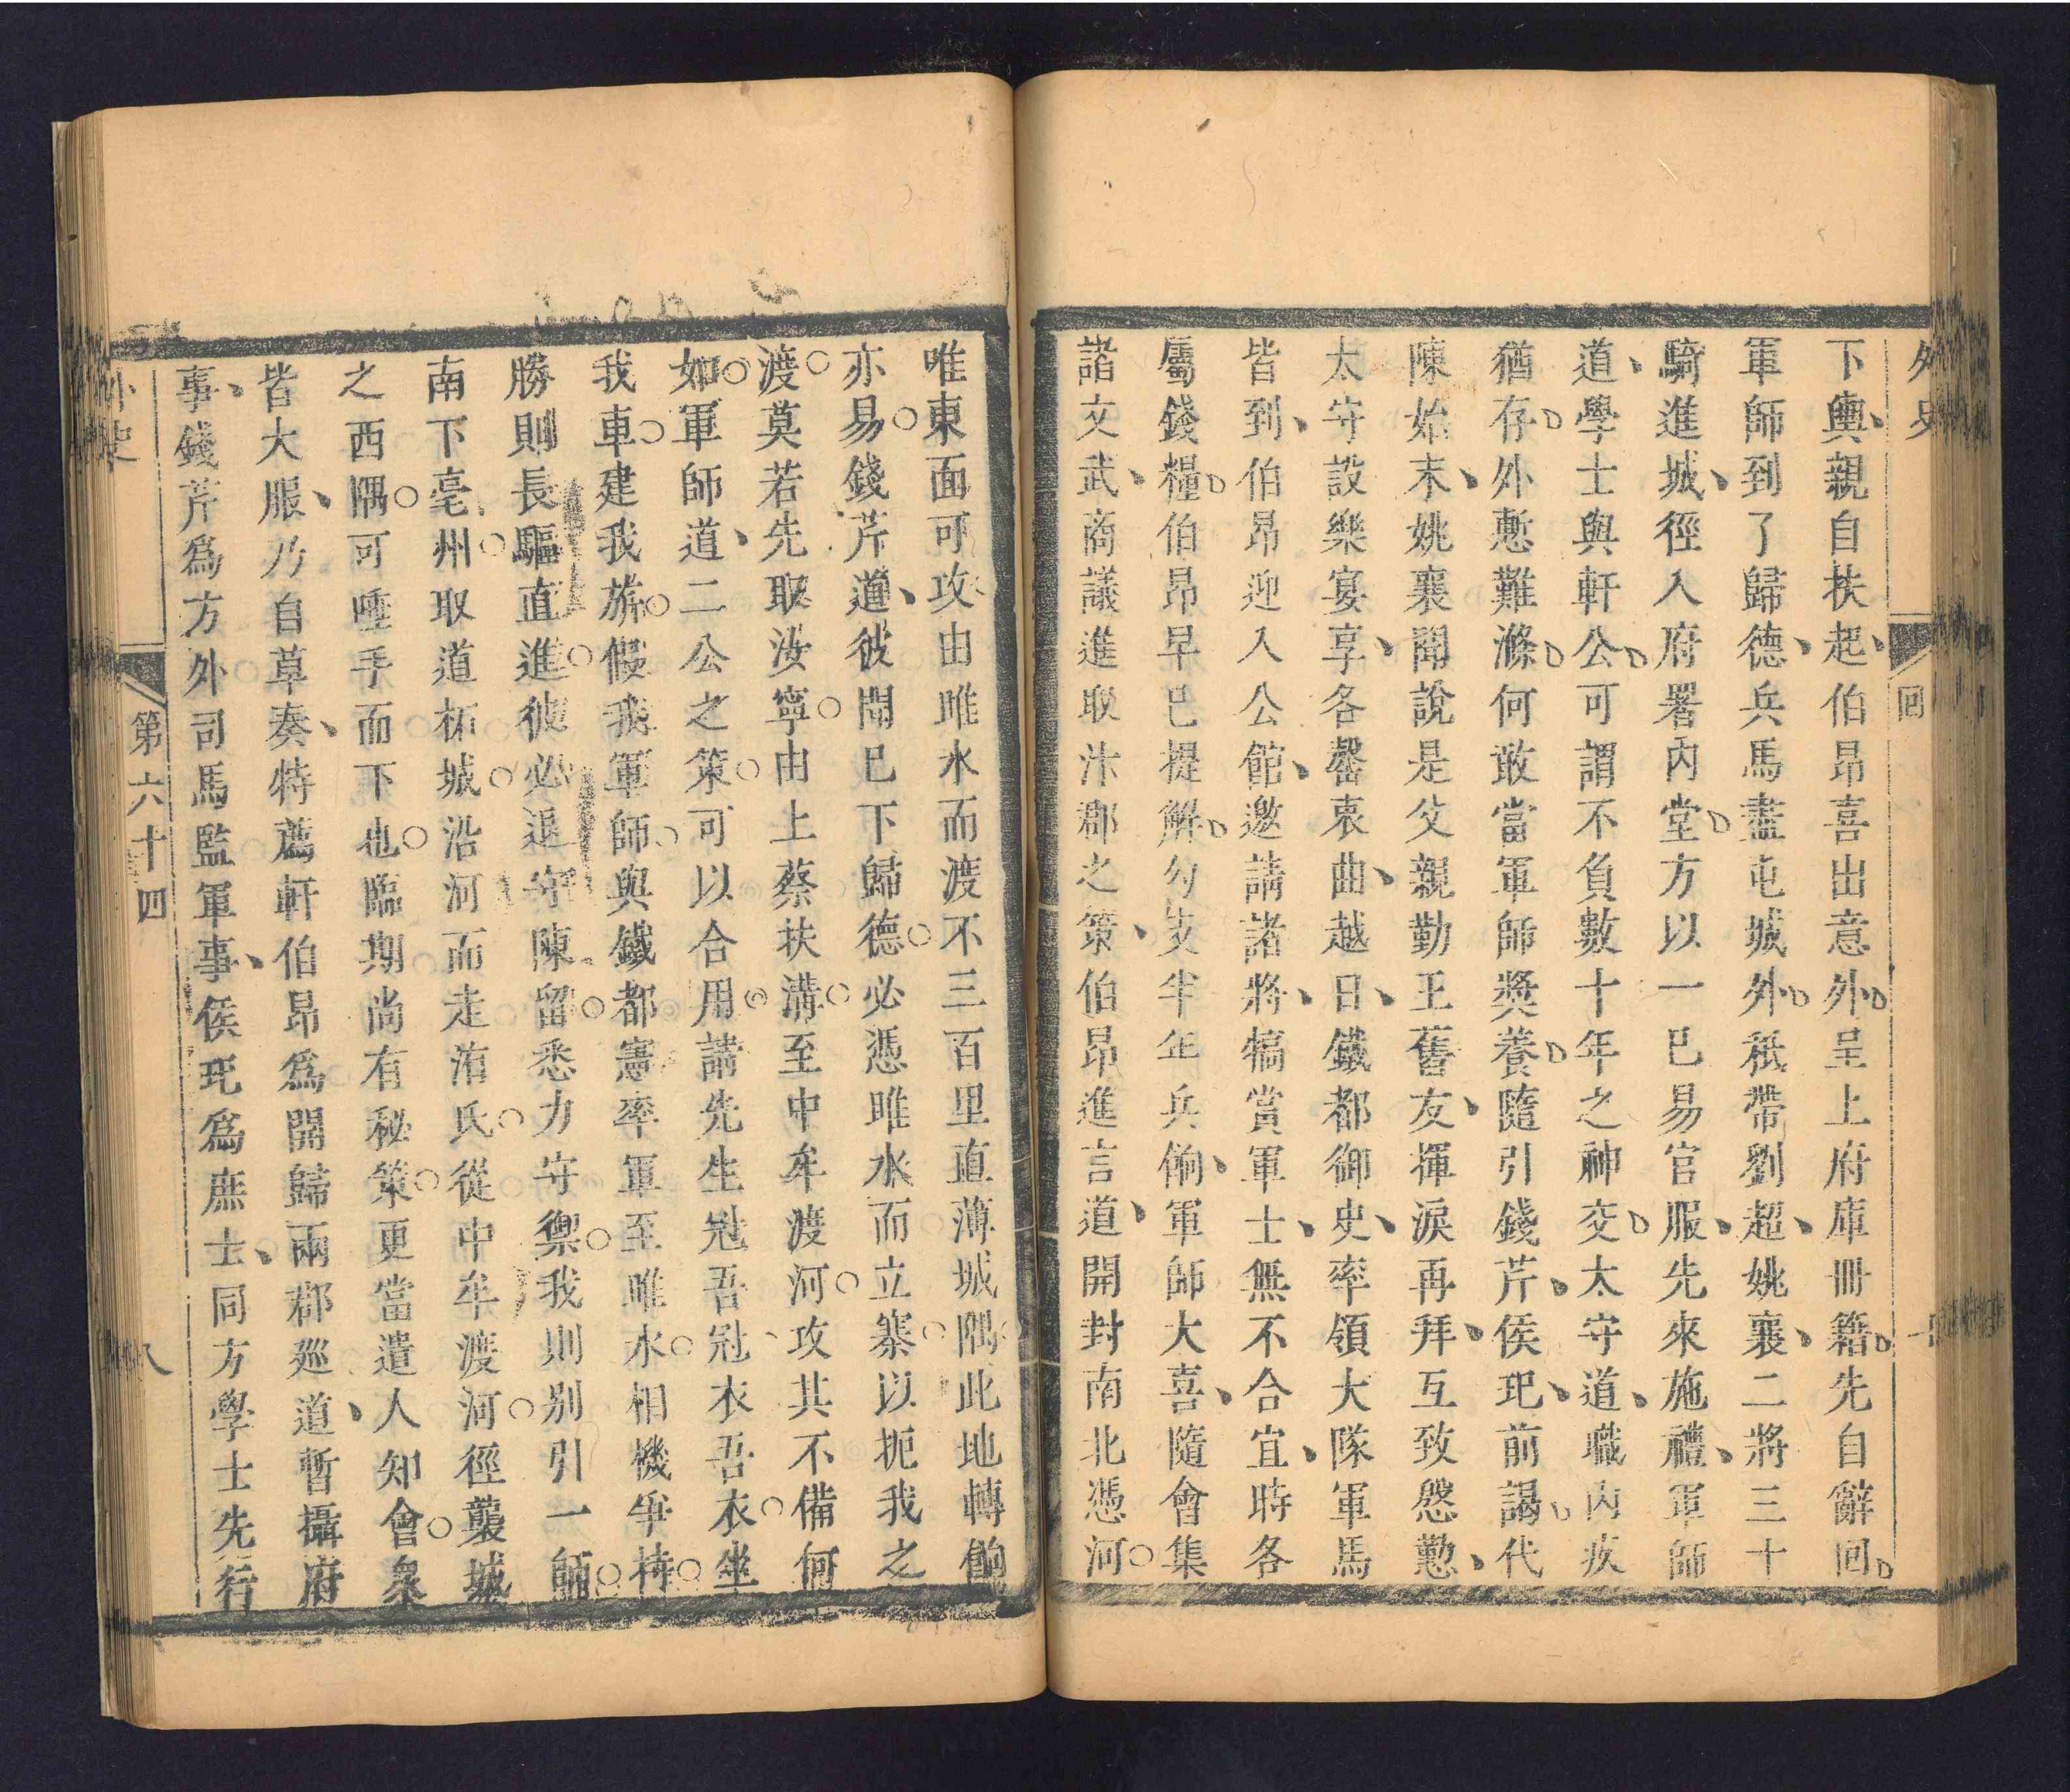 外史
回
下輿、親自扶起、伯昂喜出意外。呈上府庫冊籍。先自辭回。
軍師到了歸德、兵馬盡屯城外。秪帶劉超、姚襄、二將三十
騎進城、徑入府署內堂。方以一巳易官服、先來施禮、軍師
道、學士與軒公。可謂不負數十年之神交。太守道、職內疚
猶存。外慙難滌。何敢當軍師獎養。隨引錢芹、侯玘、前謁。代
陳始末、姚襄聞說是父親勤王舊友、揮淚再拜、互致慇懃、
太守設樂宴享、各罄衷曲、越日、鐵都御史、率領大隊軍馬
皆到、伯昂迎入公館、邀請諸將、犒賞軍士、無不合宜、時各
屬錢糧。伯昂早巳提解。勾支半年兵餉、軍師大喜、隨會集
諸文武、商議進取汴郡之策、伯昂進言道、開封南北憑河○
唯東面可攻由睢水而渡不三百里直薄城隅此地轉餉
亦易○錢芹道、彼聞巳下歸德○必憑睢水而立寨○以扼我之
渡○莫若先取汝寧○由上蔡扶溝○至中牟渡河○攻其不備何
如○軍師道、二公之策○可以合用◎請先生冠吾冠、衣吾衣○坐
我車○建我旂○假我軍師○與鐵都憲率軍至睢水○相機爭持○
勝則長驅直進○彼必退守陳留○悉力守禦○我則別引一師○
南下亳州○取道柘城○沿河而走洧氏○從中牟渡河○徑襲城
之西隅○可唾手而下也○臨期尚有秘策○更當遣人知會○衆
皆大服、乃自草奏、特薦軒伯昂爲開歸兩郡廵道、暫攝府
事、錢芹爲方外司馬監軍事、侯玘爲庶士、同方學士先行
外史
第六十四
八